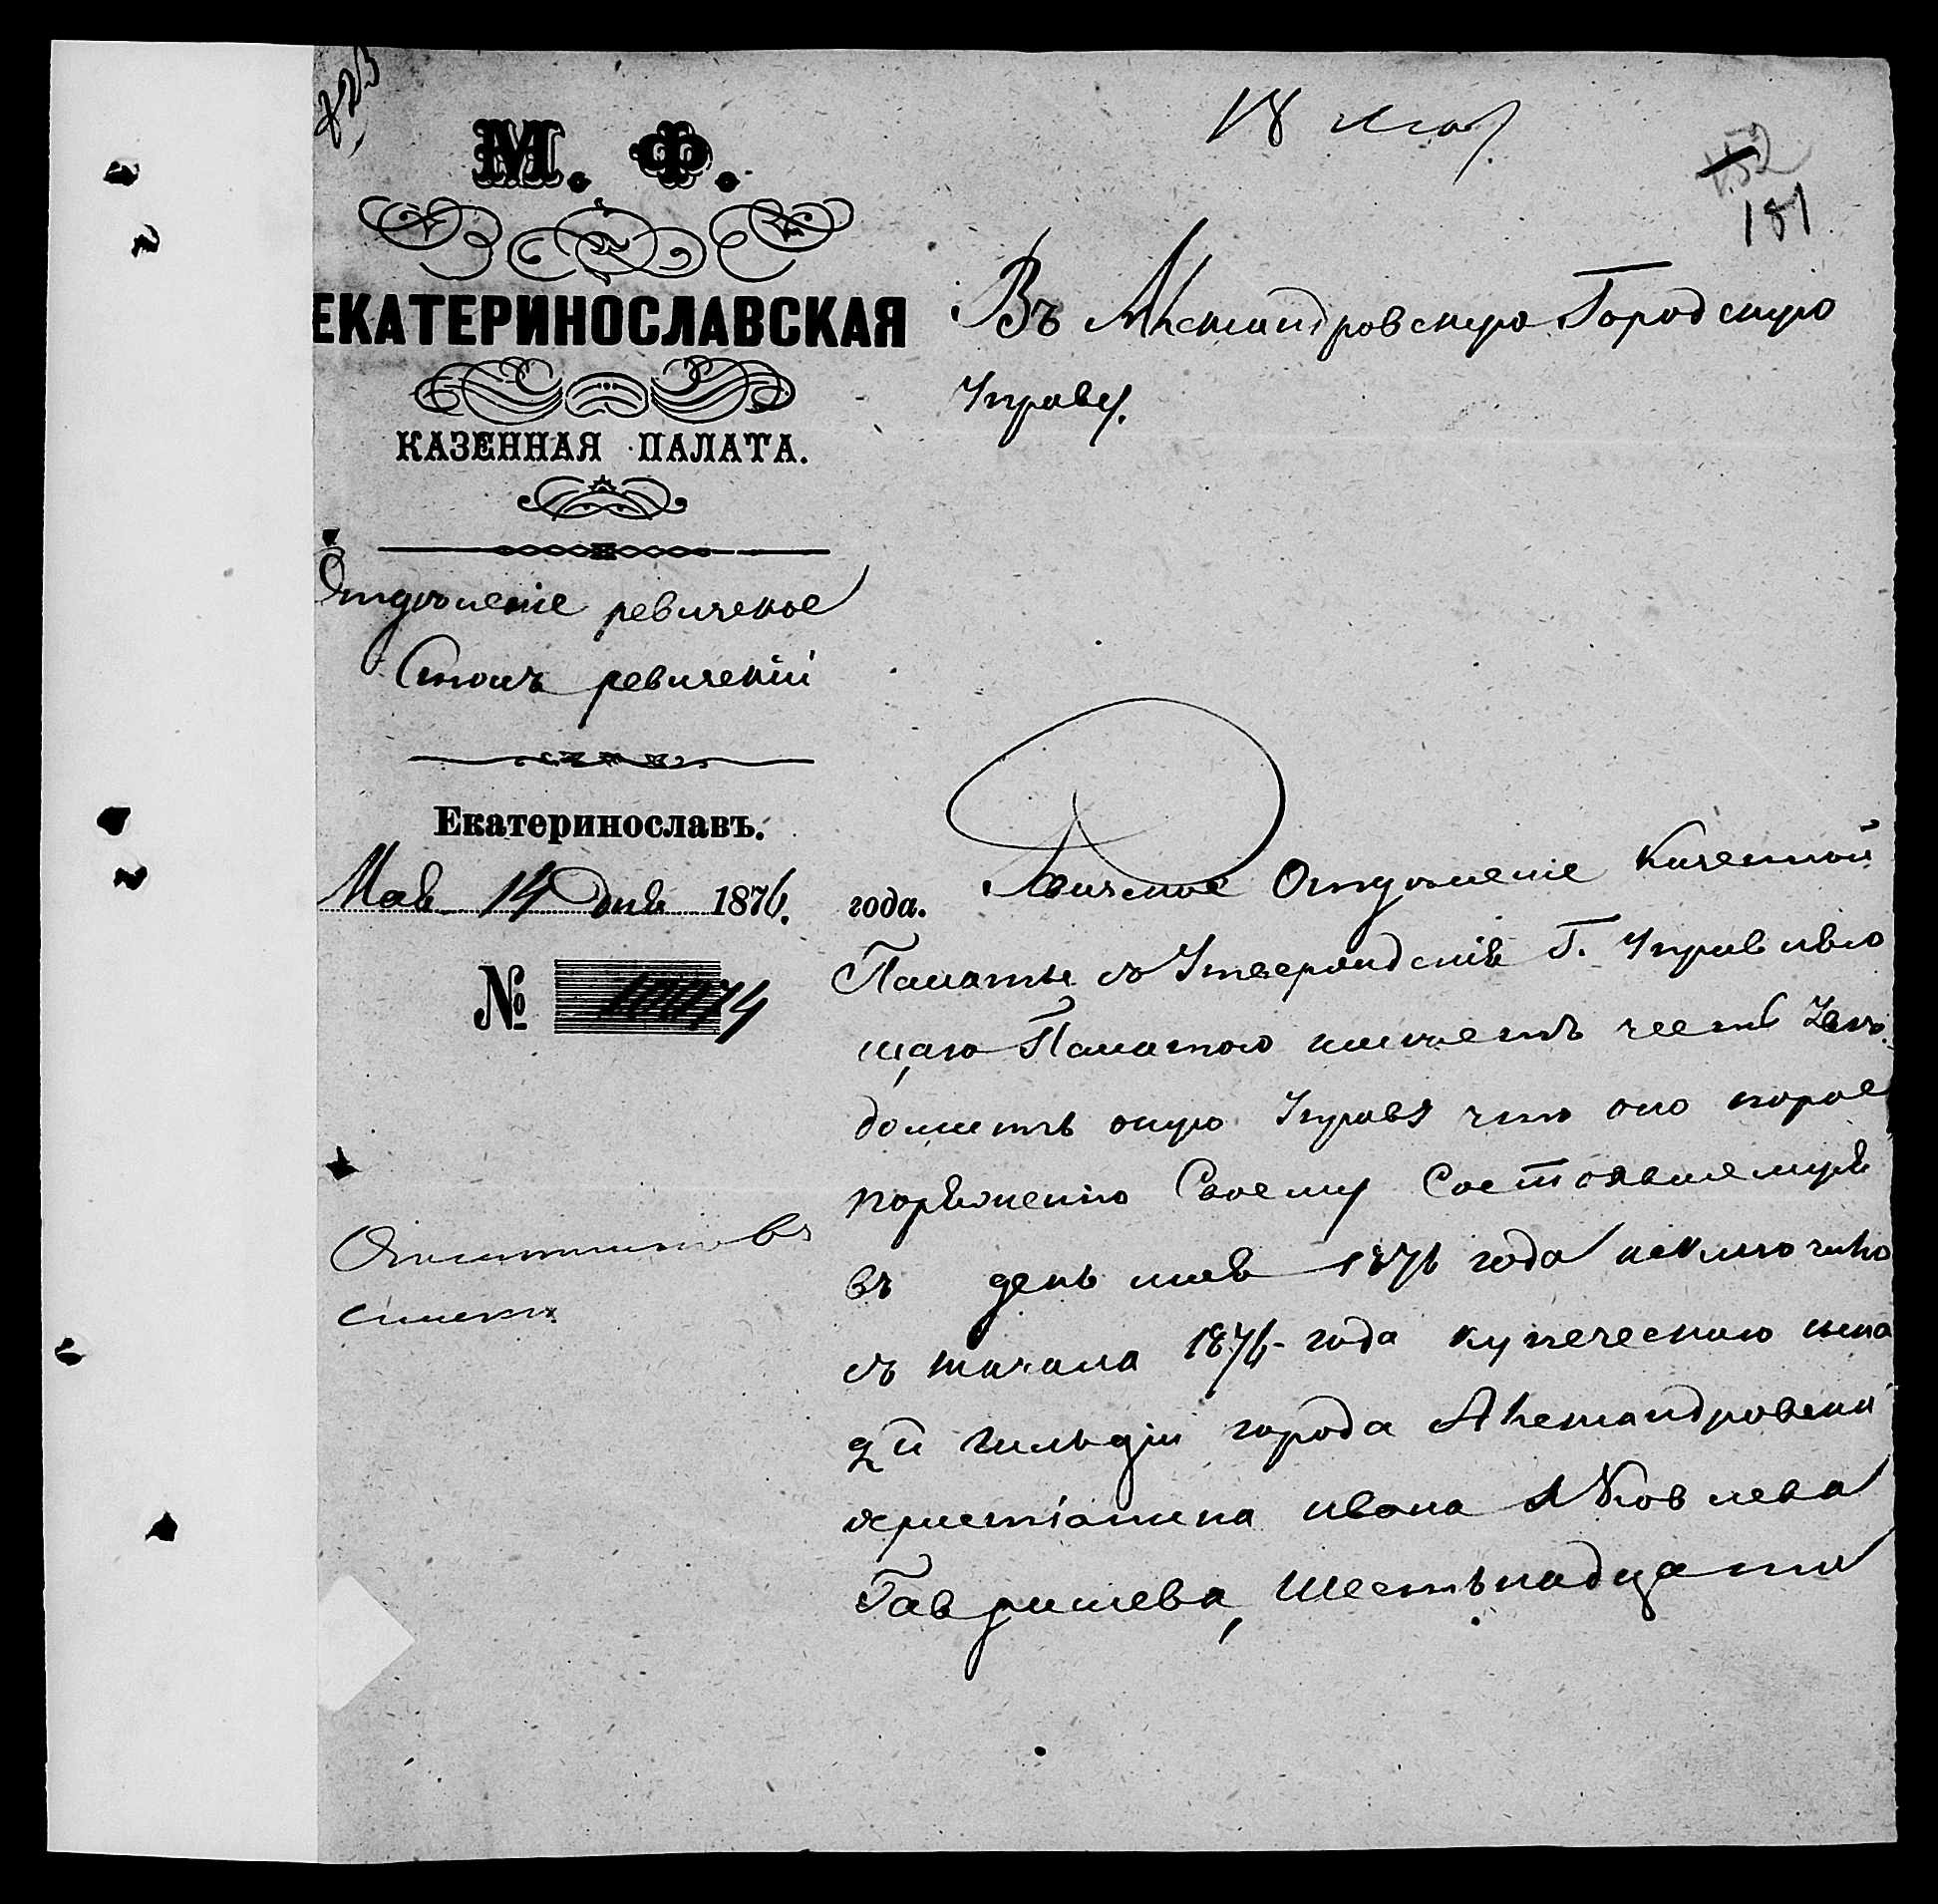 18 мая
181
М. Ф.
ЕКАТЕРИНОСЛАВСКАЯ
КАЗЕННАЯ ПАЛАТА.
Отдѣленіе ревизское
Столъ ревизскій
Екатеринославъ.
Мая 14 дня 1876 года.
№
Въ Александровскую Городскую
Управу.
Ревизское Отдѣленіе Казенной
Палаты съ Утвержденія Г. Управляю
щаго Палатою имѣетъ честь Увѣ
домить оную Управу что оно по рас
поряженію Своему Состоявшемуся
въ день мая 1876 года исключило
съ начала 1876 года купеческаго сына
2й гильдіи города Александровска
христіанина Ивана Яковлева
Гавришева, Шестьнадцати